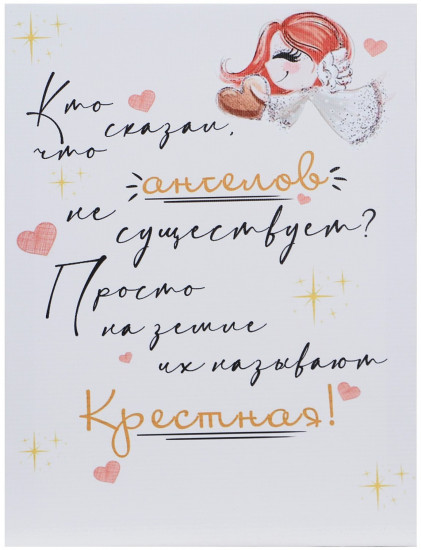 Кто
сказал,
что
ангелов
не
существует?
Просто
на земле
их называют
Крестная!